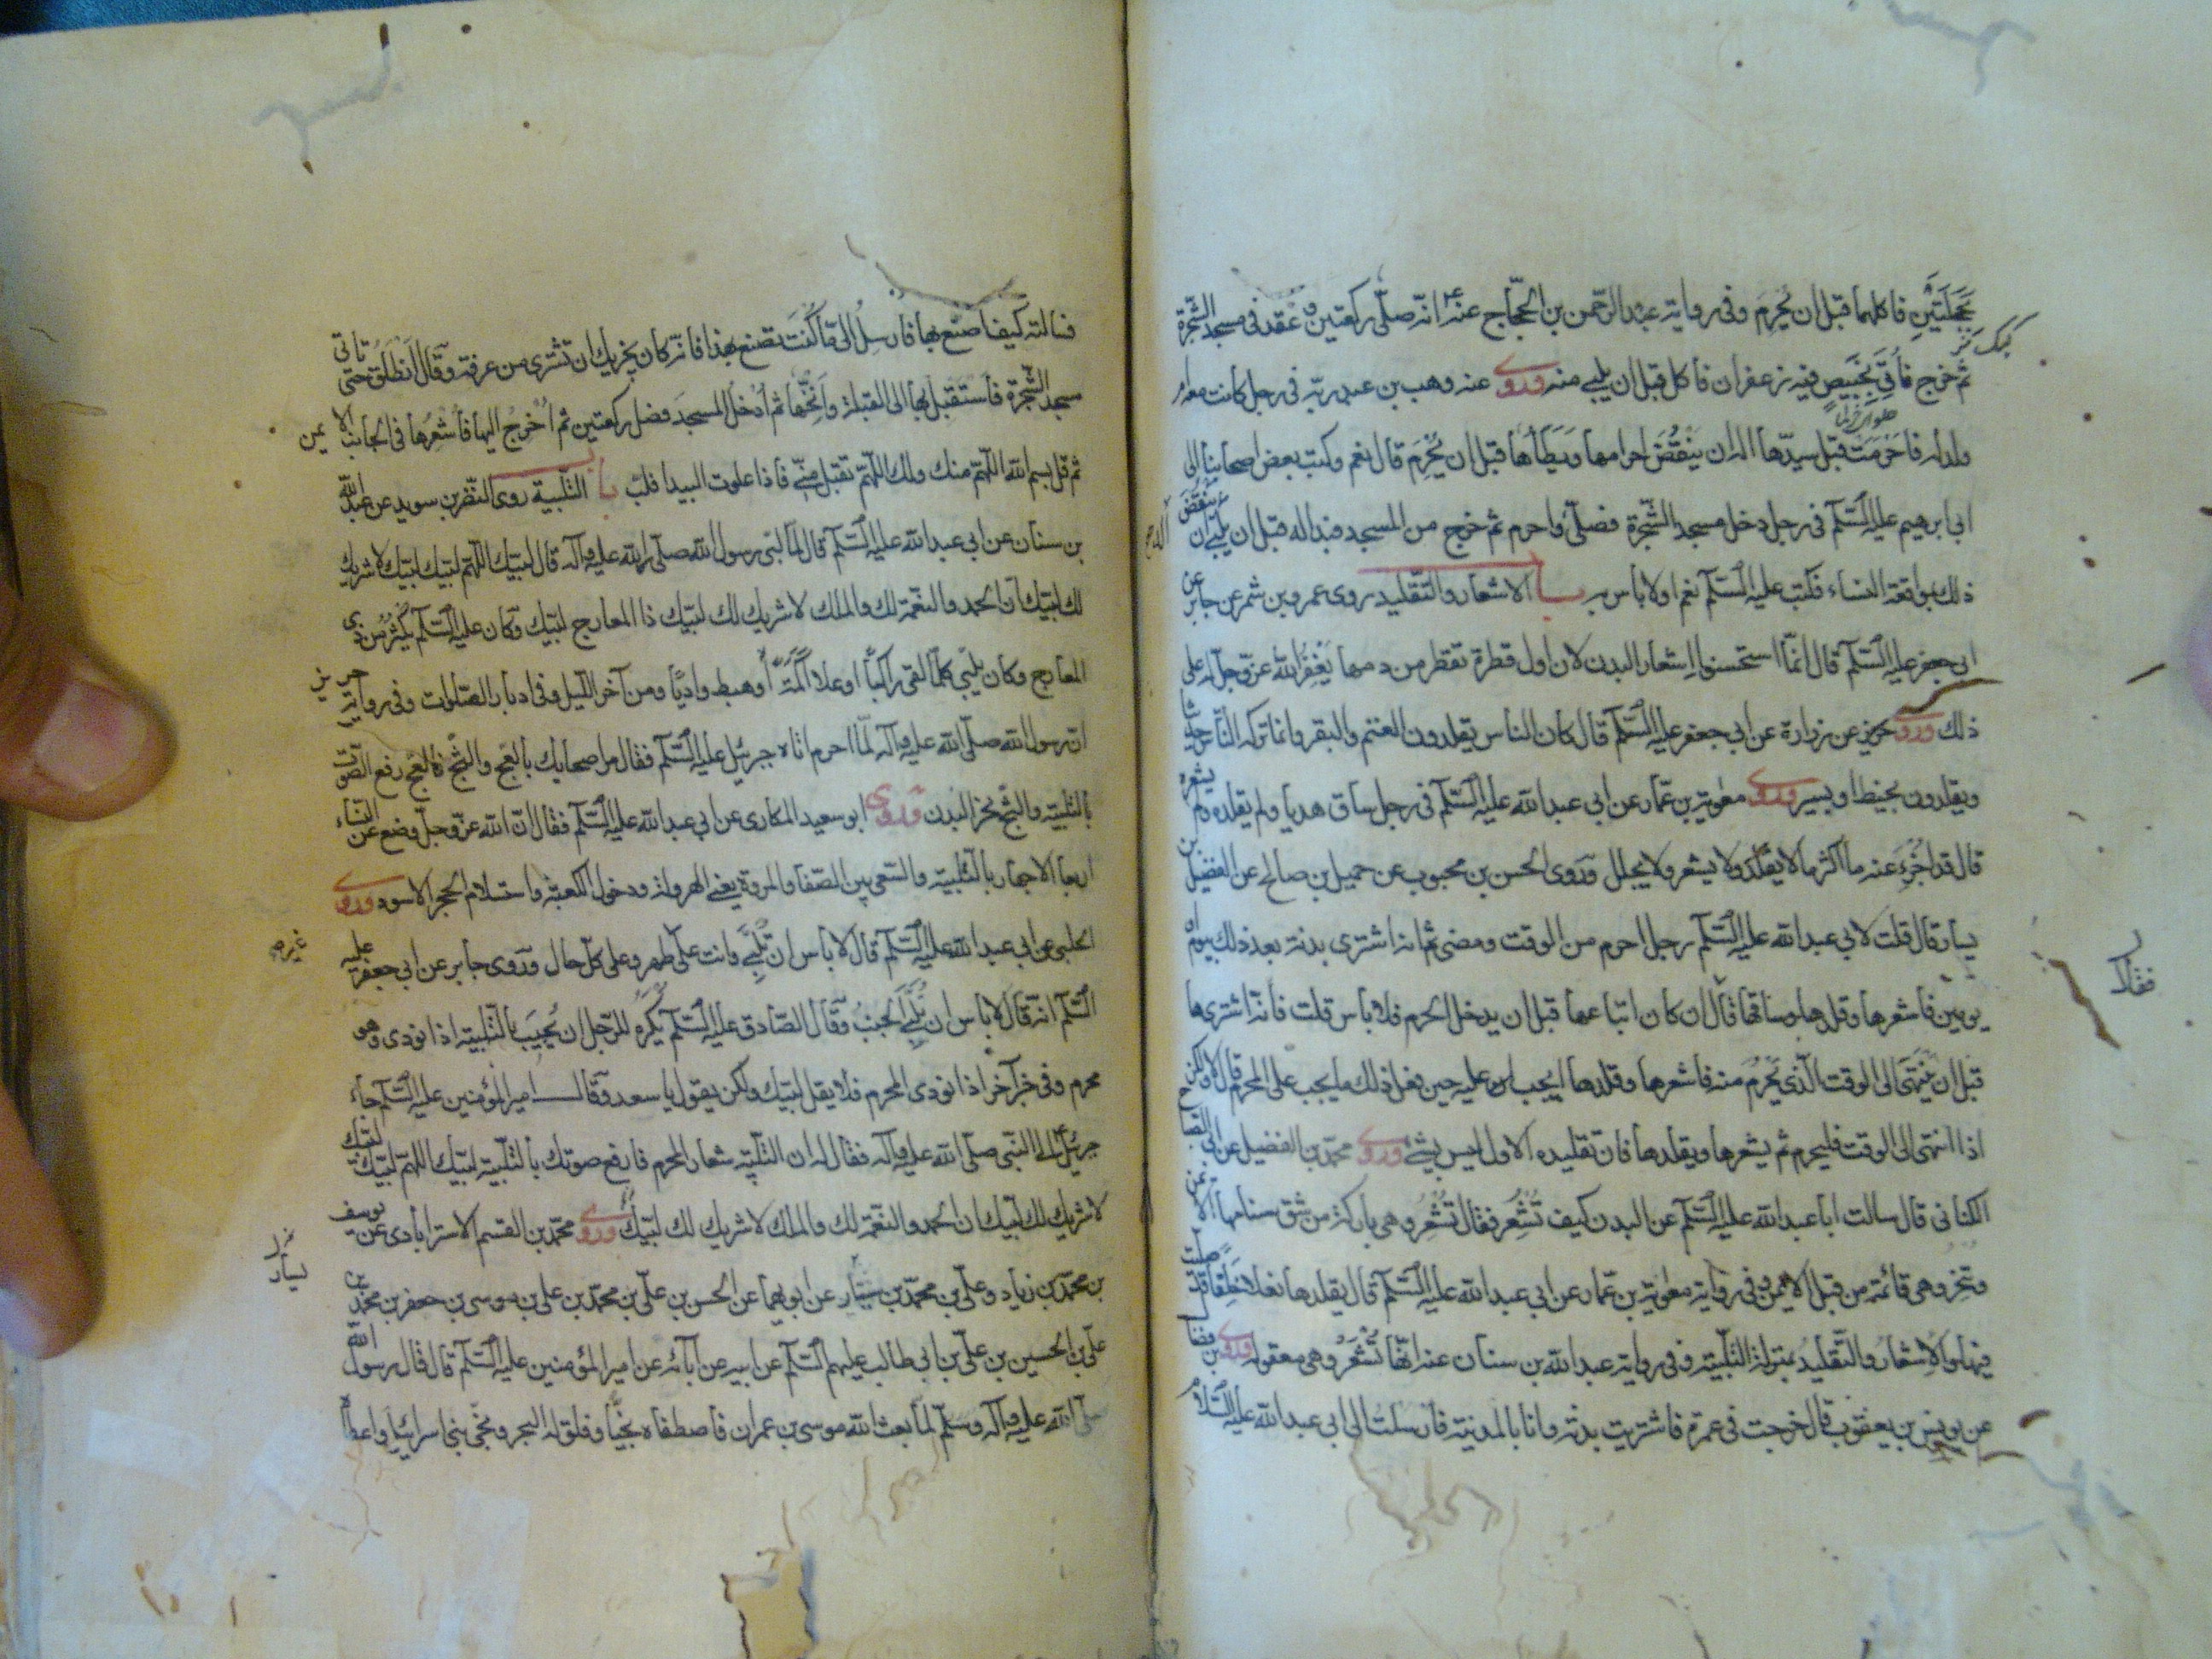 بحجلتين فاكلهما قبل ان يحرم وفى رواية عبد الرحمن بن الحجاج عنه انه صلى ركعتين وعقد فى مسجد الشجرة
ثم خرج فاتى بخبيص فيه زعفران فاكل قبل ان يلبى منه وروى عنه وهب بن عبد ربه فى رجل كانت معه ام
ولد له فاحرمت قبل سيدها اله ان ينقض احرامها ويطأها قبل ان يحرم قال نعم وكتب بعض اصحابنا الى
ابى ابرهيم عليه السلم فى رجل دخل مسجد الشجرة فصلى واحرم ثم خرج من المسجد فبدا له قبل ان يلبى ان ينقض
ذلك بمواقعة النساء فكتب عليه السلم نعم او لا باس به باب الاشعار والتقليد روى عمرو بن شمر عن جابر عن
ابى جعفر عليه السلم قال انما استحسنوا اشعار البدن لان اول قطرة تقطر من دمها يغفر الله عز وجل له على
ذلك وروى حريز عن زرارة عن ابى جعفر عليه السلم قال كان الناس يقلدون الغنم والبقر وانما تركه الناس حديثا
ويقلدون بخيط او بسير وروى معوية بن عمار عن ابى عبد الله عليه السلم فى رجل ساق هديا ولم يقلده ولم يشعره
قال قد اجزء عنه ما اكثر ما لا يقلد ولا يشعر ولا يجلل وروى الحسن بن محبوب عن جميل بن صالح عن الفضيل بن
يسار قال قلت لابى عبد الله عليه السلم رجل احرم من الوقت ومضى ثم انه اشترى بدنة بعد ذلك بيوم او
يومين فاشعرها وقلدها وساقها فقال ان كان ابتاعها قبل ان يدخل الحرم فلا باس قلت فانه اشتراها
قبل ان ينتهى الى الوقت الذى يحرم منه فاشعرها وقلدها ايجب عليه حين فعل ذلك ما يجب على المحرم قال لا ولكن
اذا انتهى الى الوقت فليحرم ثم يشعرها ويقلدها فان تقليده الاول ليس بشئ وروى محمد بن الفضيل عن ابى الصباح
الكنانى قال سالت ابا عبد الله عليه السلم عن البدن كيف تشعر فقال تشعر وهى باركة من شق سنامها الايمن
وتنحر وهى قائمة من قبل الايمن وفى رواية معوية بن عمار عن ابى عبد الله عليه السلم قال يقلدها نعلا خلقا قد صليت
فيها والاشعار والتقليد بمنزلة التلبية وفى رواية عبد الله بن سنان عنه انها تشعر وهى معقولة وروى ابن فضال
عن يونس بن يعقوب قال خرجت فى عمرة فاشتريت بدنة وانا بالمدينة فارسلت الى ابى عبد الله عليه السلام
فسالته كيف اصنع بها فارسل الى ما كنت تصنع بهذا فانه كان يجزيك ان تشترى من عرفة وقال انطلق حتى تاتى
مسجد الشجرة فاستقبل بها الى القبلة وانخها ثم ادخل المسجد فصل ركعتين ثم اخرج اليها فاشعرها فى الجانب الايمن
ثم قل بسم الله اللهم منك ولك اللهم تقبل منى فاذا علوت البيدا فلب باب التلبية روى النضر بن سويد عن عبد الله
بن سنان عن ابى عبد الله عليه السلم قال لما لبى رسول الله صلى الله عليه وآله قال لبيك اللهم لبيك لبيك لا شريك
لك لبيك ان الحمد والنعمة لك والملك لا شريك لك لبيك ذا المعارج لبيك وكان عليه السلم يكثر من ذى
المعارج وكان يلبى كلما لقى راكبا او علا اكمة او هبط واديا ومن آخر الليل وفى ادبار الصلوات وفى رواية حريز
ان رسول الله صلى الله عليه وآله لما احرم اتاه جبرئيل عليه السلم فقال مر اصحابك بالعج والثج فالعج رفع الصوت
بالتلبية والثج نحر البدن وروى ابو سعيد المكارى عن ابى عبد الله عليه السلم فقال ان الله عز وجل وضع عن النساء
اربعا الاجهار بالتلبية والسعى بين الصفا والمروة يعنى الهرولة ودخول الكعبة واستلام الحجر الاسود وروى
الحلبى عن ابى عبد الله عليه السلم قال لا باس ان تلبى وانت على طهر وعلى كل حال وروى جابر عن ابى جعفر عليه
السلم انه قال لا باس ان يلبى الجنب وقال الصادق عليه السلم يكره للرجل ان يجيب بالتلبية اذا نودى وهو
محرم وفى خبر آخر اذا نودى المحرم فلا يقل لبيك ولكن يقول يا سعد وقال امير المؤمنين عليه السلم جاء
جبرئيل الى النبى صلى الله عليه وآله فقال له ان التلبية شعار المحرم فارفع صوتك بالتلبية لبيك اللهم لبيك لبيك
لا شريك لك لبيك ان الحمد والنعمة لك والملك لا شريك لك لبيك وروى محمد بن القسم الاسترابادى عن يوسف
بن محمد بن زياد وعلى بن محمد بن سيار عن ابويهما عن الحسن بن على بن محمد بن على بن موسى بن جعفر بن محمد بن
على بن الحسين بن على بن ابى طالب عليهم السلم عن ابيه عن آبائه عن امير المؤمنين عليه السلم قال قال رسول الله
صلى الله عليه وآله وسلم لما بعث الله موسى بن عمران فاصطفاه نجيا وفلق له البحر ونجى بنى اسرائيل واعطاه